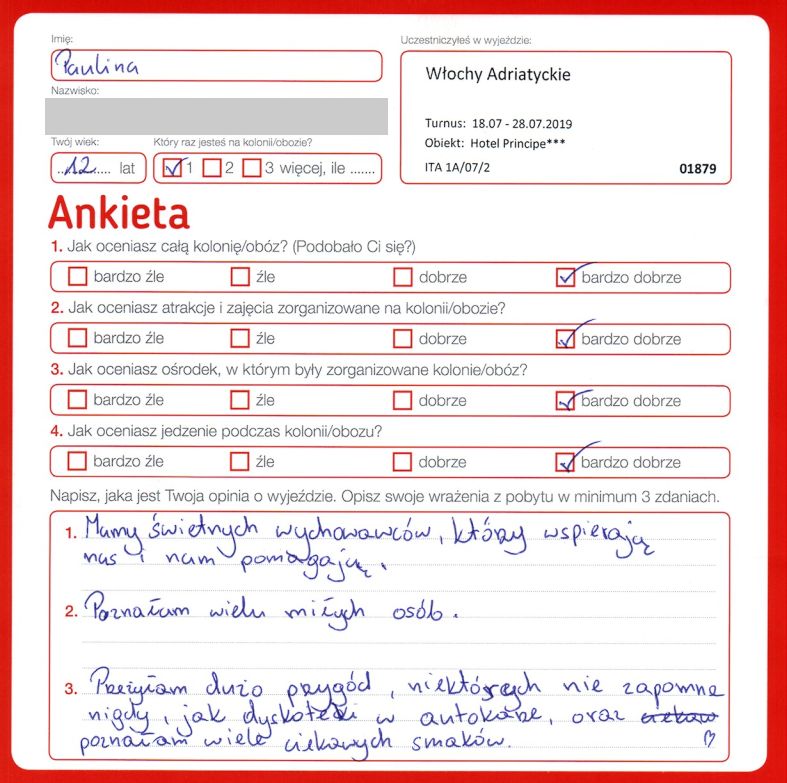 Imię:
Paulina
Nazwisko:
Twój wiek:
12 lat
Który raz jesteś na kolonii/obozie?
1 2 3 więcej, ile .......
Uczestniczyłeś w wyjeździe:
Włochy Adriatyckie
Turnus: 18.07 - 28.07.2019
Obiekt: Hotel Principe***
ITA 1A/07/2 01879
Ankieta
1. Jak oceniasz całą kolonię/obóz? (Podobało Ci się?)
bardzo źle źle dobrze bardzo dobrze
2. Jak oceniasz atrakcje i zajęcia zorganizowane na kolonii/obozie?
bardzo źle źle dobrze bardzo dobrze
3. Jak oceniasz ośrodek, w którym były zorganizowane kolonie/obóz?
bardzo źle źle dobrze bardzo dobrze
4. Jak oceniasz jedzenie podczas kolonii/obozu?
bardzo źle źle dobrze bardzo dobrze
Napisz, jaka jest Twoja opinia o wyjeździe. Opisz swoje wrażenia z pobytu w minimum 3 zdaniach.
1. Mamy świetnych wychowawców, którzy wspierają
nas i nam pomagają.
2. Poznałam wielu miłych osób.
3. Przeżyłam dużo przygód, niektórych nie zapomnę
nigdy, jak dyskoteki w autokarze, oraz
poznałam wiele ciekawych smaków.